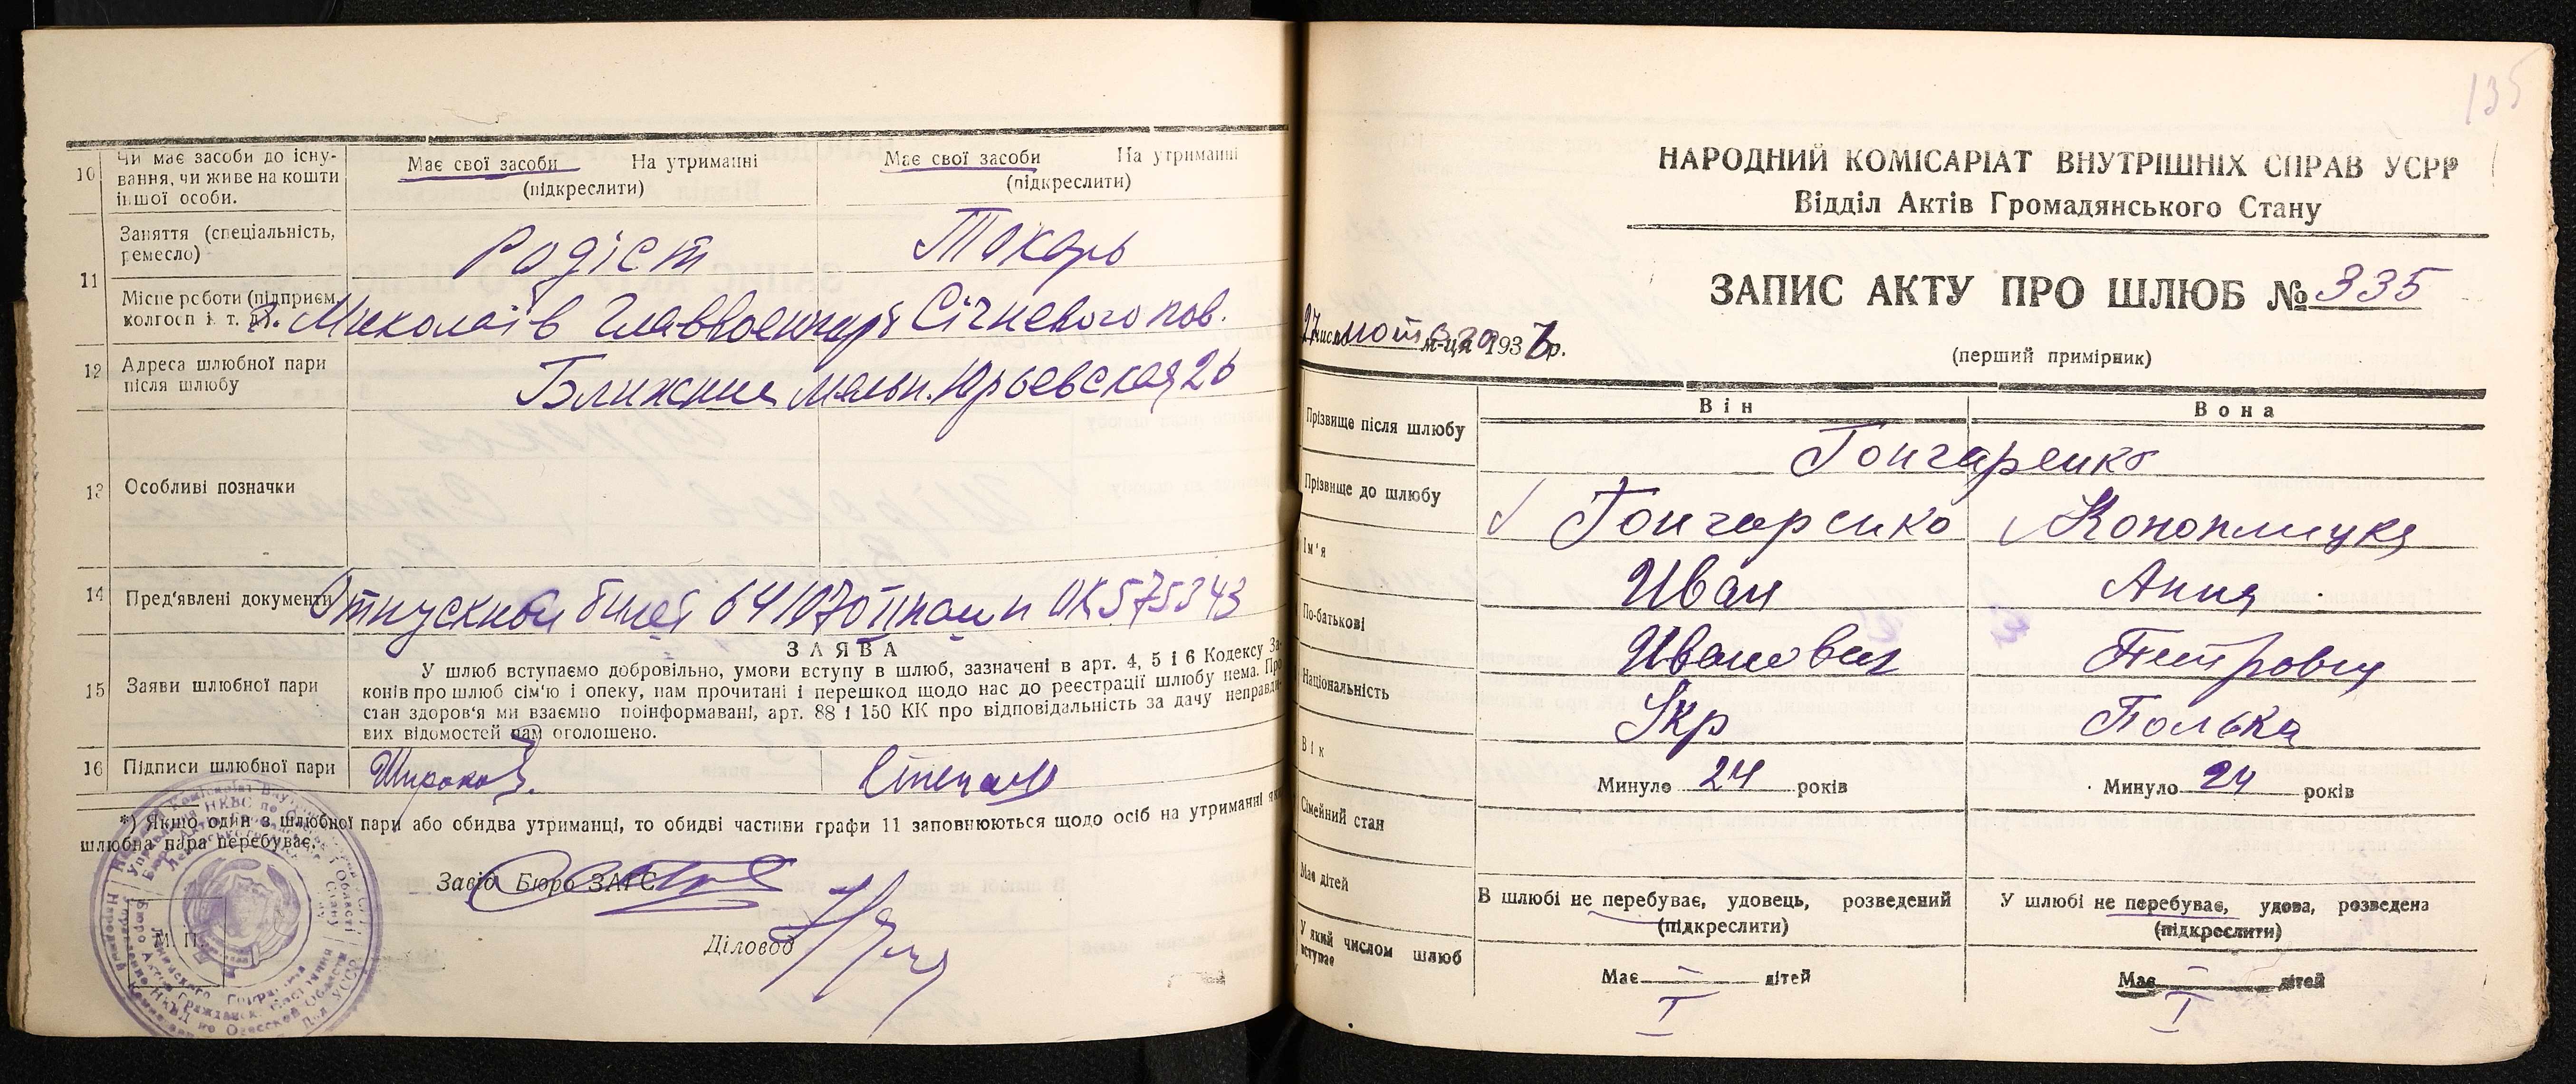 10 Чи має засоби до існу-
вання, чи живе на кошти
іншої особи.
Має свої засоби На утриманні
(підкреслити)
Має свої засоби На утриманні
(підкреслити)
11 Заняття (спеціальність,
ремесло)
Радіст
Токарь
Місце роботи (підприєм.
колгосп і т. д.)
Миколаїв Січневого пов.
12 Адреса шлюбної пари
після шлюбу
Ближние мельн. Юрьевская 26
13 Особливі позначки
14 Пред'явлені документи
Отпускной билет 641070 ОК 575343
15 Заяви шлюбної пари
ЗАЯВА
У шлюб вступаємо добровільно, умови вступу в шлюб, зазначені в арт. 4, 5 і 6 Кодексу За-
конів про шлюб сім'ю і опеку, нам прочитані і перешкод щодо нас до реєстрації шлюбу нема. Про
стан здоров'я ми взаємно поінформавані, арт. 88 і 150 КК про відповідальність за дачу неправди-
вих відомостей нам оголошено.
16 Підписи шлюбної пари
Широков
*) Якщо один з шлюбної пари або обидва утриманці, то обидві частини графи 11 заповнюються щодо осіб на утриманні яких
шлюбна пара перебуває.
Завід Бюро ЗАГС
Діловод
М. П.
135
НАРОДНИЙ КОМІСАРІАТ ВНУТРІШНІХ СПРАВ УСРР
Відділ Актів Громадянського Стану
ЗАПИС АКТУ ПРО ШЛЮБ № 335
27 числа лютого м-ця 1937 р.
(перший примірник)
Він
Вона
Прізвище після шлюбу
Гончаренко
Прізвище до шлюбу
Гончаренко
Конопницкая
Ім'я
Иван
Анна
По-батькові
Иванович
Петровна
Національність
Укр
Полька
Вік
Минуло 24 років
Минуло 24 років
Сімейний стан
В шлюбі не перебуває, удовець, розведений
(підкреслити)
У шлюбі не перебуває, удова, розведена
(підкреслити)
Має дітей
Має — дітей
Має — дітей
У який числом шлюб
вступає
I
I